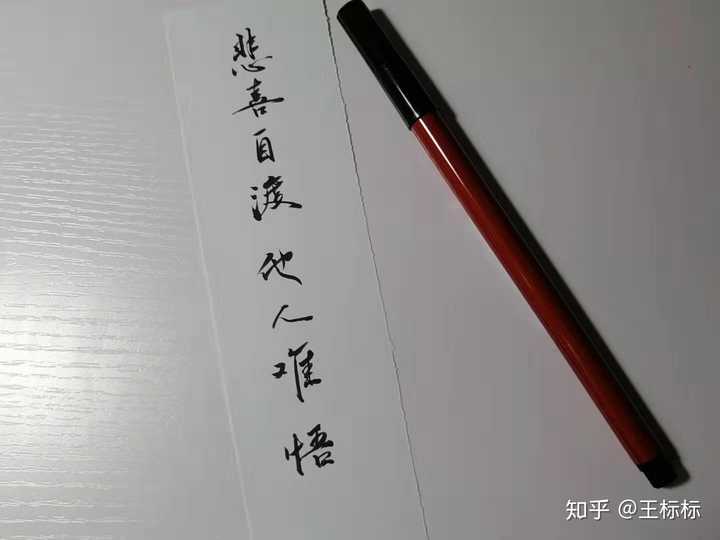 悲喜自渡他人难悟
知乎 @王标标